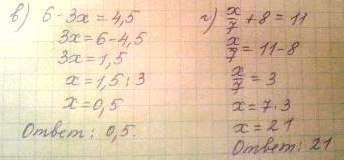 в) 6 - 3x = 4,5
3x = 6 - 4,5
3x = 1,5
x = 1,5 : 3
x = 0,5
Ответ: 0,5.
г) x/7 + 8 = 11
x/7 = 11 - 8
x/7 = 3
x = 7·3
x = 21
Ответ: 21